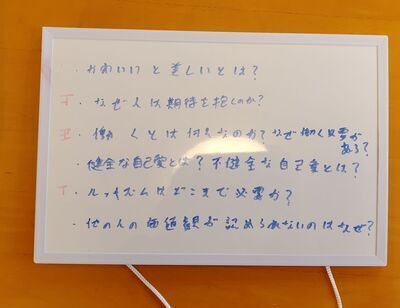 ・かわいいと美しいとは?
丁 なぜ人は期待を抱くのか?
丑 働くとは何なのか?なぜ働く必要が
ある?
・健全な自己愛とは?不健全な自己愛とは?
T ルッキズムはどこまで必要か?
・他の人の価値観が認められないのはなぜ?